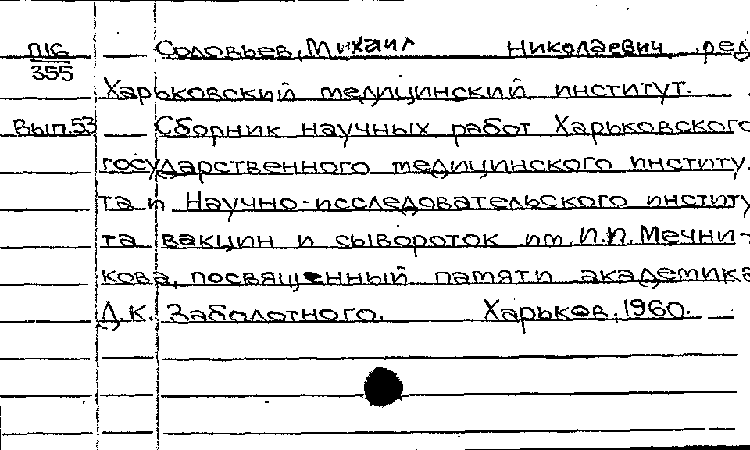 П16 Соловьев, Михаил Николаевич, ред
355
Харьковский медицинский институт.
Вып.53 Сборник научных работ Харьковского
государственного медицинского институ-
та и Научно-исследовательского институ
та вакцин и сывороток им. И.И. Мечни-
кова, посвященный памяти академика
Д.К. Заболотного. Харьков, 1960.